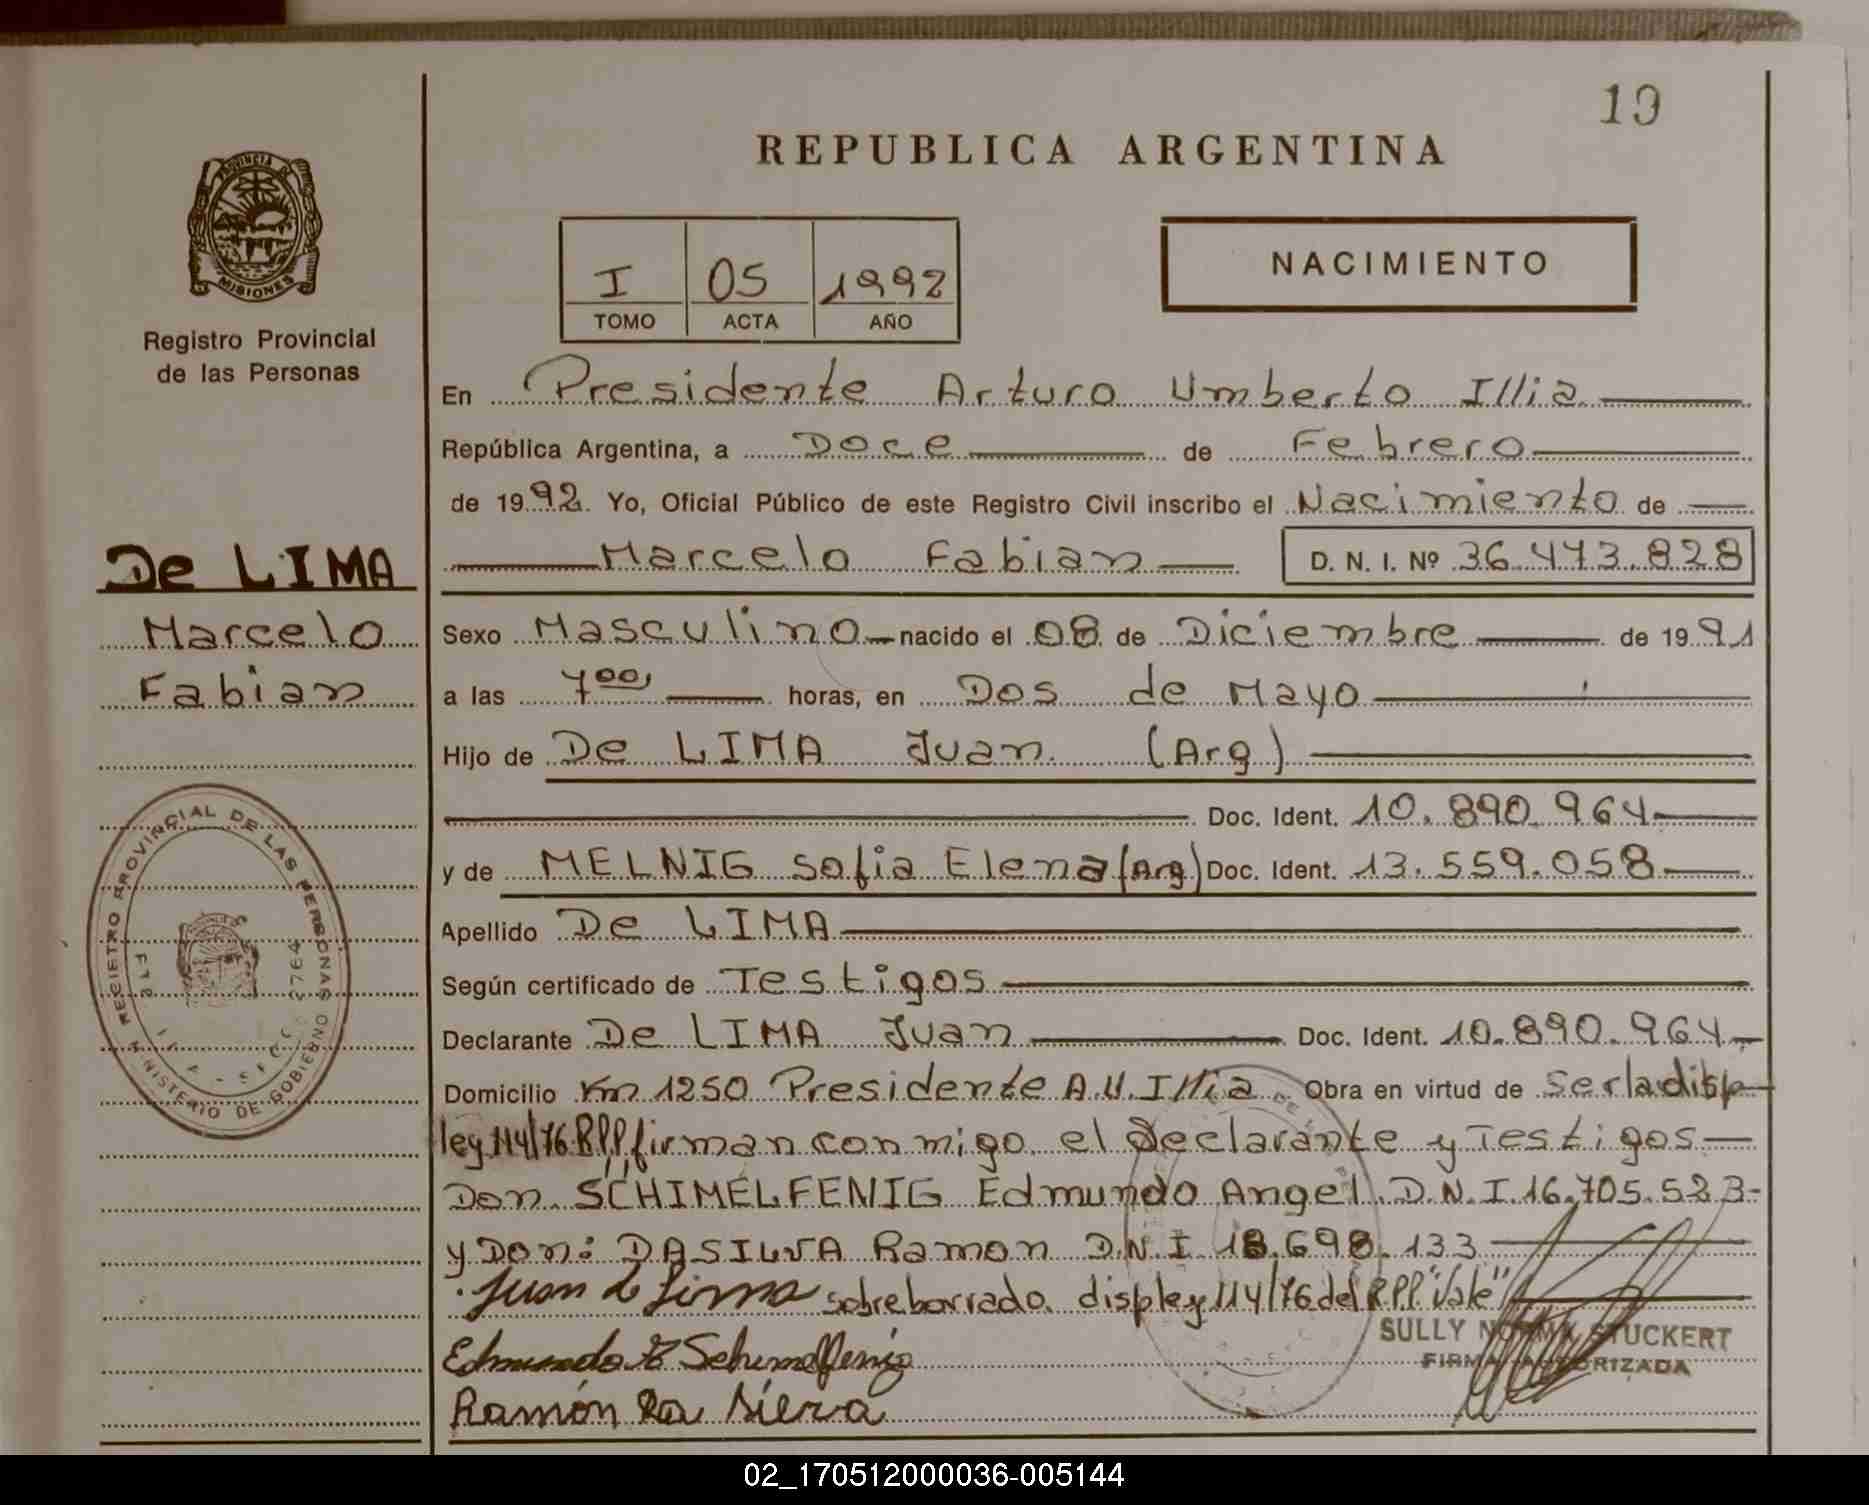 19
REPUBLICA ARGENTINA
PROVINCIA DE MISIONES
Registro Provincial
de las Personas
I 05 1992
TOMO ACTA AÑO
NACIMIENTO
En Presidente Arturo Umberto Illia
República Argentina, a Doce de Febrero
de 1992. Yo, Oficial Público de este Registro Civil inscribo el Nacimiento de
Marcelo Fabian D. N. I. Nº 36.473.828
De LIMA
Marcelo
Fabian
Sexo Masculino nacido el 08 de Diciembre de 1991
a las 7 00, horas, en Dos de Mayo
Hijo de De LIMA Juan. (Arg)
Doc. Ident. 10.890.964
y de MELNIG Sofia Elena (Arg) Doc. Ident. 13.559.058
Apellido De LIMA
Según certificado de Testigos
Declarante De LIMA Juan Doc. Ident. 10.890.964
Domicilio Km 1250 Presidente A.U. Illia Obra en virtud de ser la disp
ley 114/76 R.P.P. firman conmigo el declarante y Testigos
Don. SCHIMELFENIG Edmundo Angel D.N.I. 16.705.523
y Don: DASILVA Ramon D.N.I 18.698.133
Juan de Lima sobreborrado. disp ley 114/76 del R.P.P. "Vale"
SULLY NORMA STUCKERT
FIRMA AUTORIZADA
Edmundo Schimelfenig
Ramón Da Silva
REGISTRO PROVINCIAL DE LAS PERSONAS
MINISTERIO DE GOBIERNO
02_170512000036-005144